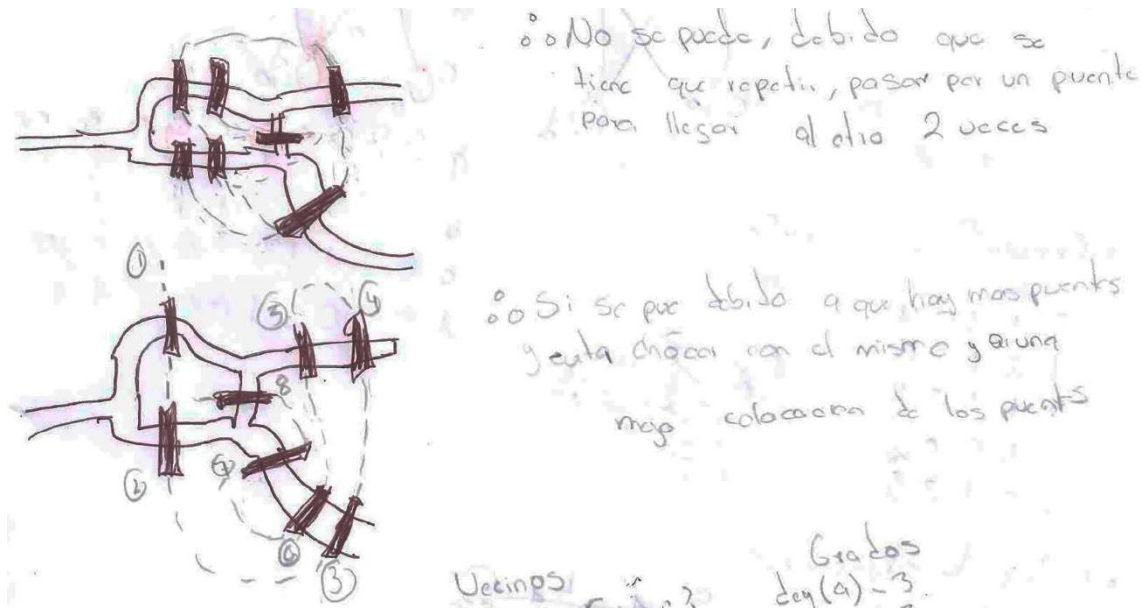 ∴ No se puede, debido que se
tiene que repetir, pasar por un puente
para llegar al otro 2 veces
1
5
4
∴ Si se pue debido a que hay mas puentes
y evita chocar con el mismo y a una
8
colocacion de los puentes
2
6
3
Grados
Vecinos
deg(a) - 3